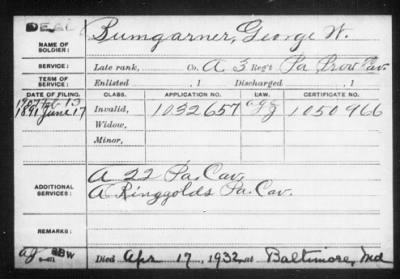 DEAD
Bumgarner, George W.
NAME OF SOLDIER:
SERVICE: Late rank, Co. A 3 Reg't Pa Prov Cav.
TERM OF SERVICE: Enlisted , 1 Discharged , 1
DATE OF FILING. CLASS. APPLICATION NO. LAW. CERTIFICATE NO.
1907 Feb 13
1891 June 17 Invalid, 1032657 1050966
Widow,
Minor,
ADDITIONAL SERVICES:
A 22 Pa. Cav.
A Ringgolds Pa. Cav.
REMARKS:
Died Apr 17, 1932, at Baltimore, Md